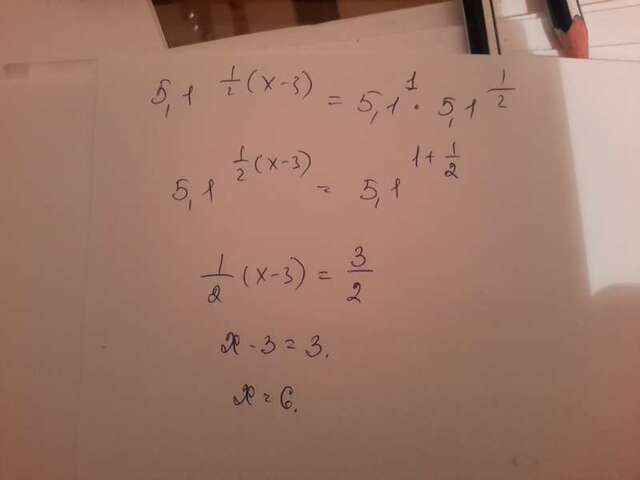 5,1^{\frac{1}{2}(x-3)} = 5,1^1 · 5,1^{\frac{1}{2}}
5,1^{\frac{1}{2}(x-3)} = 5,1^{1+\frac{1}{2}}
\frac{1}{2}(x-3) = \frac{3}{2}
x-3=3.
x=6.